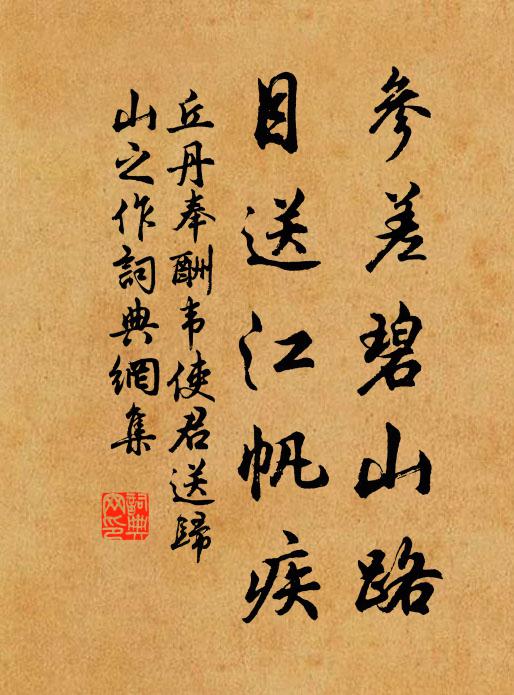 參差碧山路
目送江帆疾
丘丹奉酬韦使君送歸
山之作詞典網集
詞典
网印